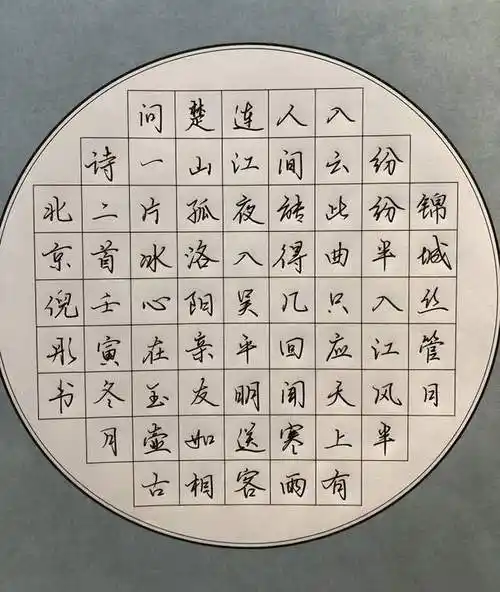 锦城丝管日
纷纷半入江风半
入云此曲只应天上有
人间能得几回闻寒雨
连江夜入吴平明送客
楚山孤洛阳亲友如相
问一片冰心在玉壶古
诗二首壬寅冬月
北京倪彤书